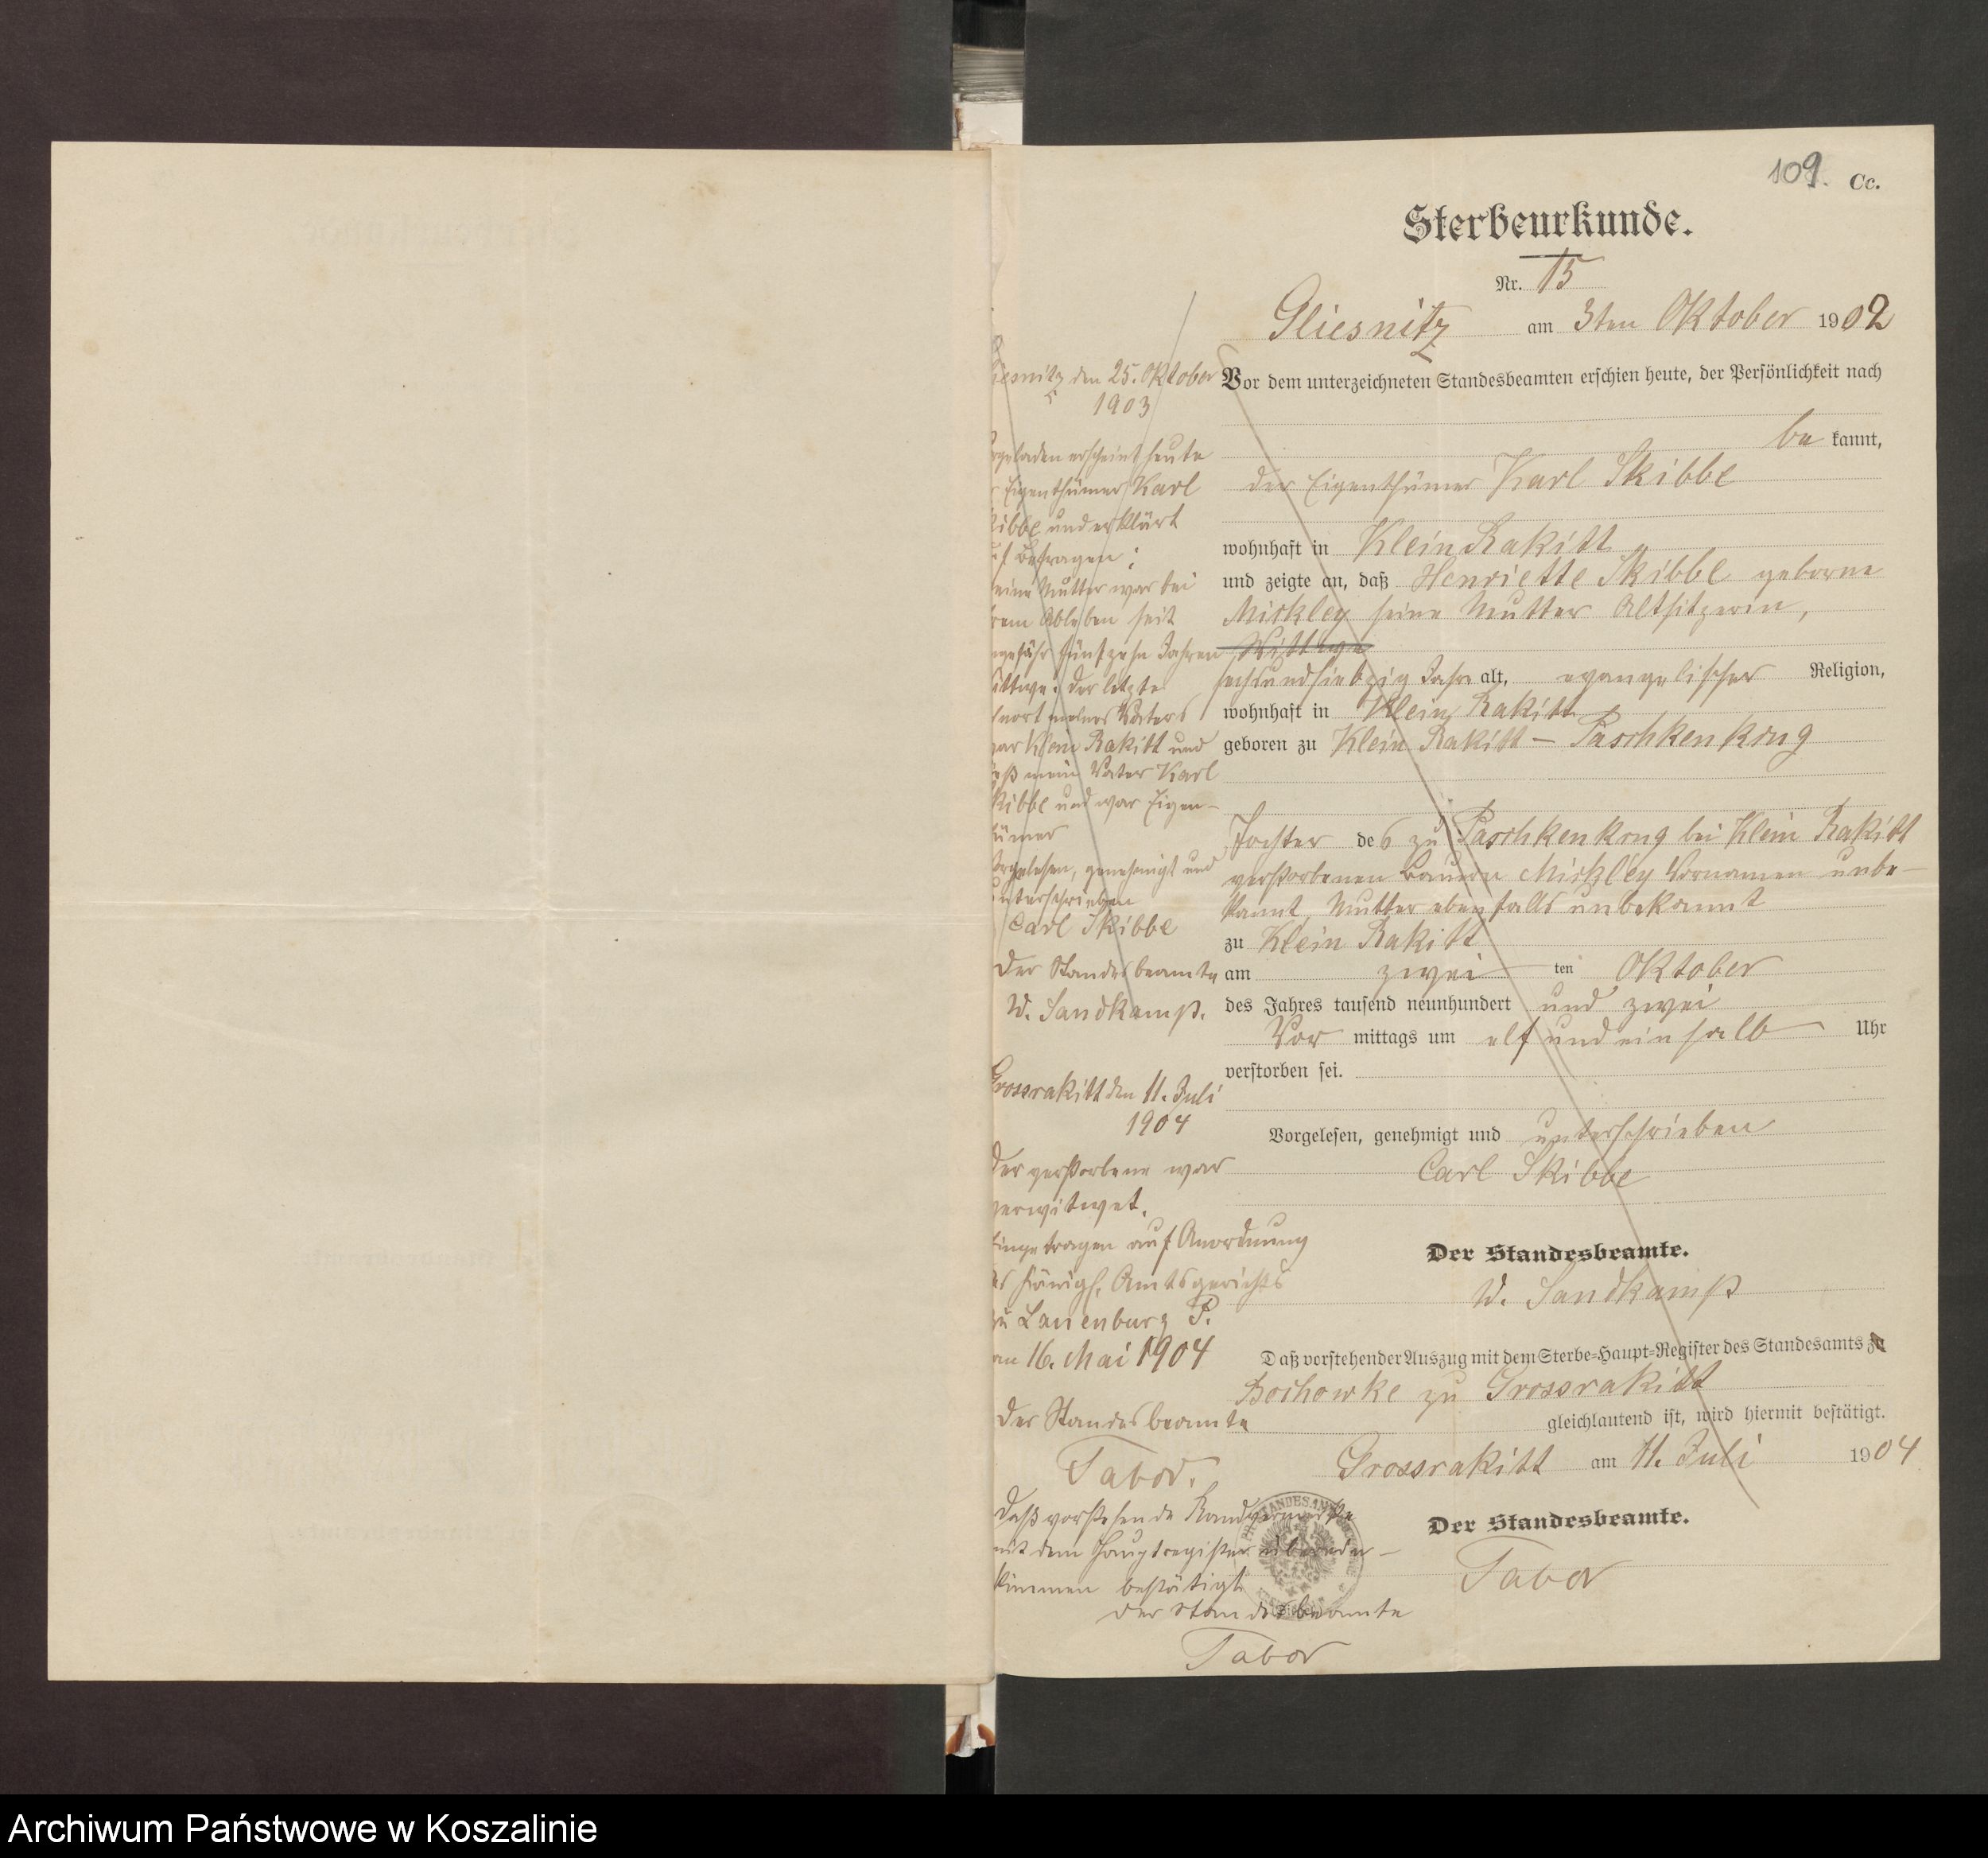 109. Cc.
Sterbeurkunde.
Nr. 15
Gliesnitz am 3ten Oktober 1902
Vor dem unterzeichneten Standesbeamten erschien heute, der Persönlichkeit nach
be kannt,
der Eigenthümer Karl Skibbe
wohnhaft in Klein Rakitt
und zeigte an, daß Henriette Skibbe geborne
seine Mutter Altsitzerin,
Wittwe
sechsundsiebzig Jahre alt, evangelischer Religion,
wohnhaft in Klein Rakitt
geboren zu Klein Rakitt – Paschkenkrug
Tochter des zu Paschkenkrug bei Klein Rakitt
verstorbenen Bauern Vornamen unbe-
kannt, Mutter ebenfalls unbekannt
zu Klein Rakitt
am zwei ten Oktober
des Jahres tausend neunhundert und zwei
Vor mittags um elf und ein halb Uhr
verstorben sei.
Vorgelesen, genehmigt und unterschrieben
Carl Skibbe
Der Standesbeamte.
W. Sandkamp
Daß vorstehender Auszug mit dem Sterbe-Haupt-Register des Standesamts zu
Bochowke zu Grossrakitt
gleichlautend ist, wird hiermit bestätigt.
Grossrakitt am 11. Juli 1904
Der Standesbeamte.
Tabor
iesnitz den 25. Oktober
1903
rgeladen erscheint heute
r Eigenthümer Karl
kibbe und erklärt
uf Befragen:
eine Mutter war bei
rem Ableben seit
ngefähr fünfzehn Jahren
ittwe. Der letzte
hnort meines Vaters
war Klein Rakitt und
eß mein Vater Karl
kibbe und war Eigen-
hümer
Vorgelesen, genehmigt und
unterschrieben
Carl Skibbe
Der Standesbeamte
W. Sandkamp.
Grossrakitt den 11. Juli
1904
Der verstorbene war
verwitwet.
Eingetragen auf Anordnung
es Königl. Amtsgerichts
zu Lauenburg P.
am 16. Mai 1904
Der Standesbeamte
Tabor.
Daß vorstehende Randvermerke
mit dem Hauptregister überein-
stimmen bestätigt
Der Standesbeamte
Tabor
Archiwum Państwowe w Koszalinie